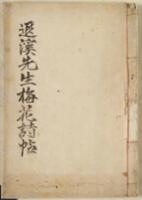 退溪先生梅花詩帖